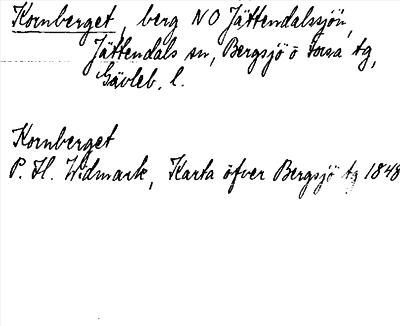 Kornberget, berg NO Jättendalssjön,
Jättendals sn, Bergsjö o Forsa tg,
Gävleb. l.
Kornberget
P. H. Widmark, Karta öfver Bergsjö tg 1848